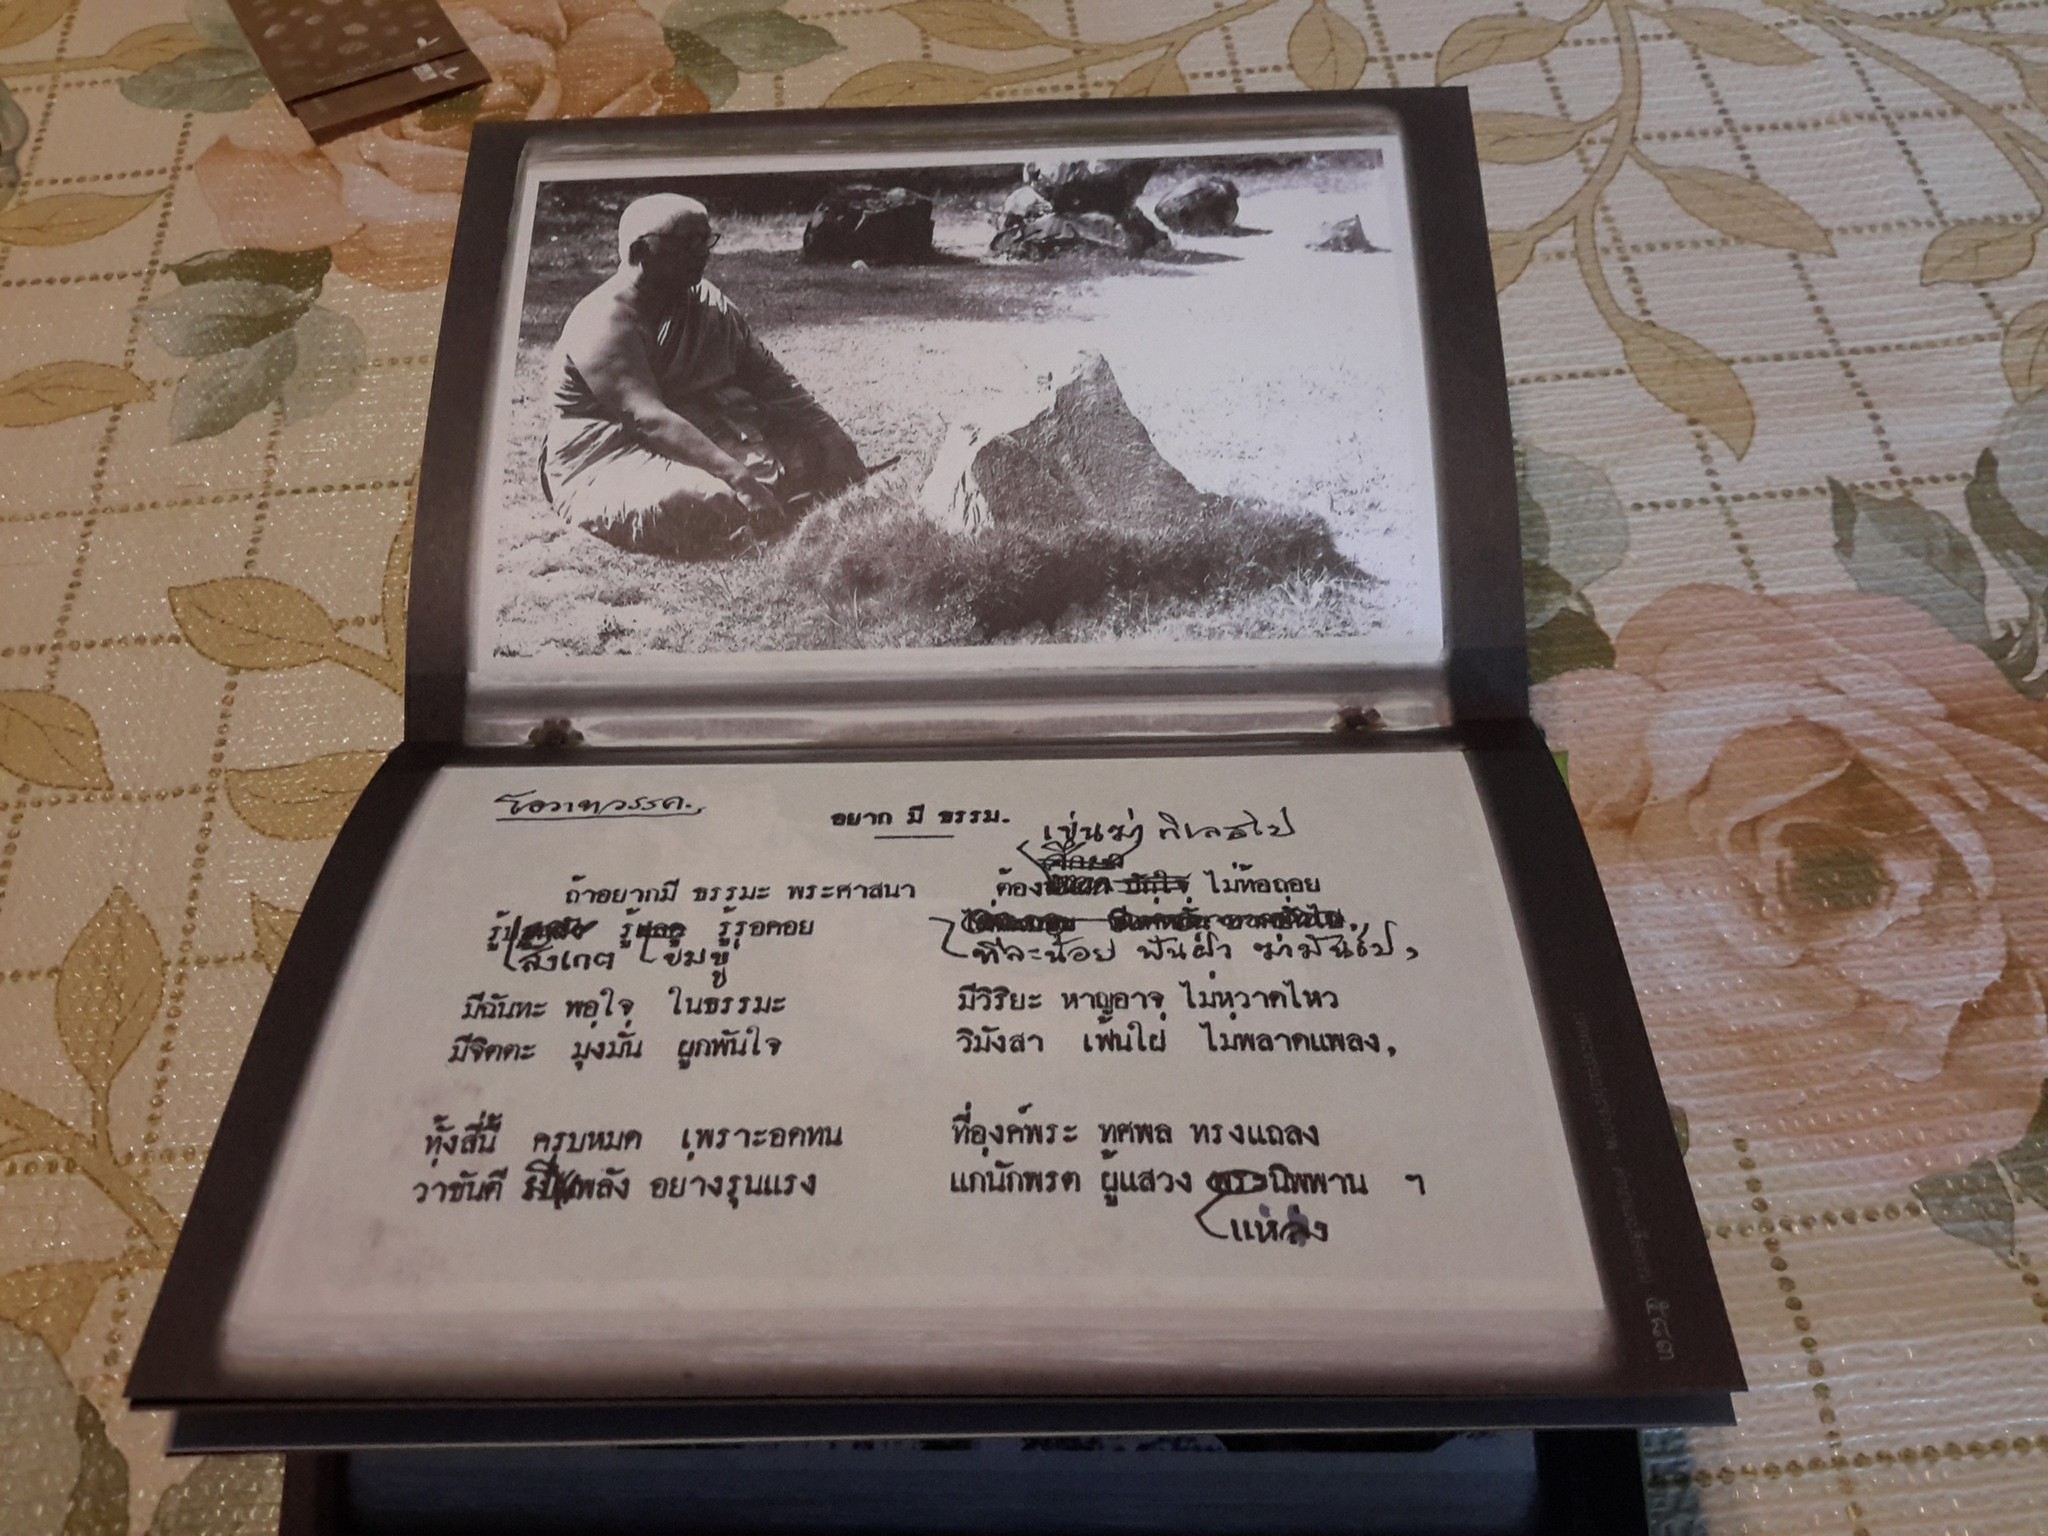 โอวาทวรรค.
อยาก มี ธรรม.
เข่นฆ่า กิเลสไป
ถ้าอยากมี ธรรมะ พระศาสนา ต้อง ไม่ท้อถอย
รู้ รู้ รู้รอคอย
สังเกต ข่มขู่ ทีละน้อย ฟันฝ่า ฆ่ามันไป,
มีฉันทะ พอใจ ในธรรมะ มีวิริยะ หาญอาจ ไม่หวาดไหว
มีจิตตะ มุ่งมั่น ผูกพันใจ วิมังสา เฟ้นใฝ่ ไม่พลาดแพลง,
ทั้งสี่นี้ ครบหมด เพราะอดทน ที่องค์พระ ทศพล ทรงแถลง
ว่าขันตี มีพลัง อย่างรุนแรง แก่นักพรต ผู้แสวง พระนิพพาน ฯ
แห่ง